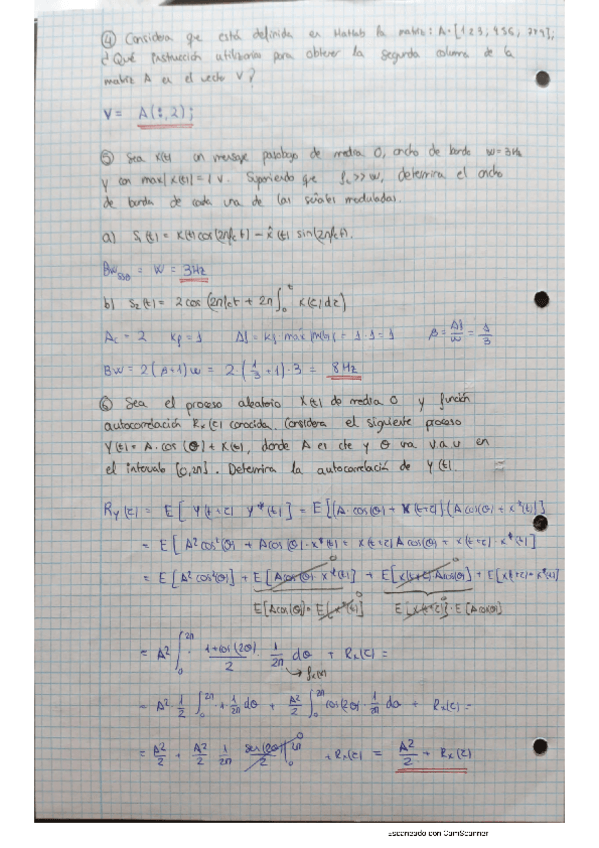 ④ Considera que está definida en Matlab la matriz: A=[1 2 3; 4 5 6; 7 8 9];
¿Qué instrucción utilizarías para obtener la segunda columna de la
matriz A en el vector V?
V = A(:,2);
⑤ Sea x(t) un mensaje pasobajo de media 0, ancho de banda W=3Hz
y con max|x(t)|=1 V. Suponiendo que fc >> W, determina el ancho
de banda de cada una de las señales moduladas.
a) S₁(t) = x(t)cos(2πfct) - x̂(t) sin(2πfct).
BwSSB = W = 3Hz
b) S₂(t) = 2cos(2πfct + 2π∫₀ᵗ x(τ)dτ)
Ac = 2 Kf = 1 Δf = Kf · máx |m(t)| = 1·1 = 1 β = Δf/W = 1/3
BW = 2(β+1)W = 2·(1/3+1)·3 = 8Hz
⑥ Sea el proceso aleatorio X(t) de media 0 y función
autocorrelación Rx(τ) conocida. Considera el siguiente proceso
Y(t) = A·cos(θ) + X(t), donde A es cte y θ una v.a u en
el intervalo [0,2π]. Determina la autocorrelación de Y(t).
Ry(τ) = E[Y(t+τ) Y*(t)] = E[(A·cos(θ) + X(t+τ))(A cos(θ) + X*(t))]
= E[A²cos²(θ) + A cos(θ)·X*(t) + X(t+τ) A cos(θ) + X(t+τ)·X*(t)]
= E[A² cos²(θ)] + E[A cos(θ)·X*(t)] 0 + E[X(t+τ)·A cos(θ)] 0 + E[X(t+τ)·X*(t)]
E[A cos(θ)]·E[X*(t)] 0 E[X(t+τ)] 0 · E[A cos(θ)]
= A² ∫₀²π (1+cos(2θ))/2 · 1/2π dθ + Rx(τ) =
→ fx(x)
= A²·1/2 ∫₀²π 1·1/2π dθ + A²/2 ∫₀²π cos(2θ)·1/2π dθ + Rx(τ) =
= A²/2 + A²/2 · 1/2π sen(2θ)/2 |₀²π 0 + Rx(τ) = A²/2 + Rx(τ)
Escaneado con CamScanner